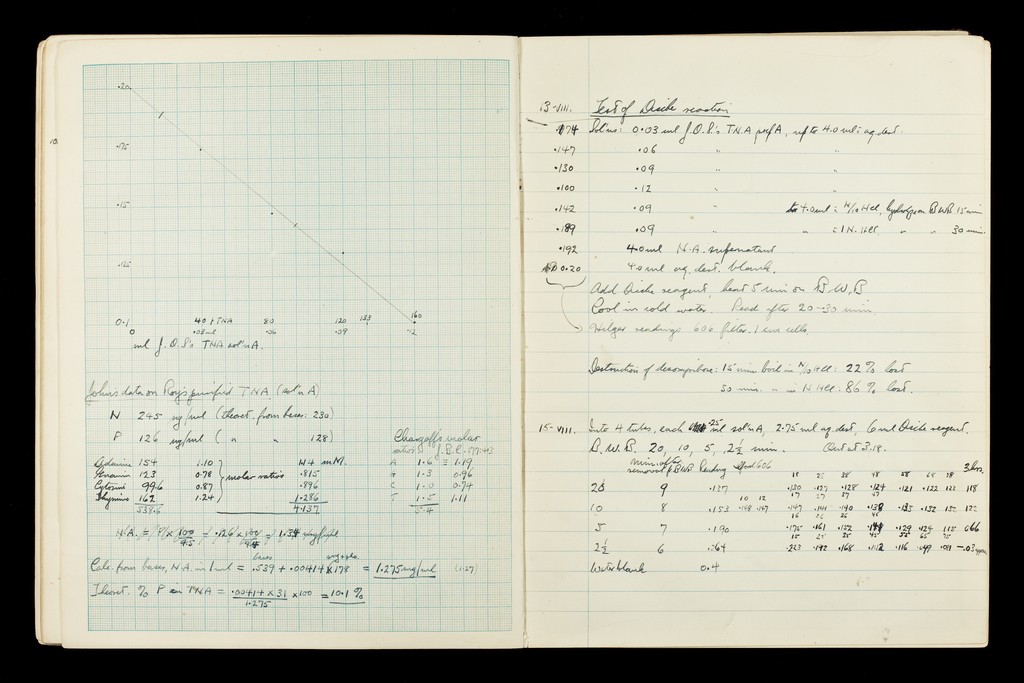 10.
.20
.175
.15
.125
0.1 40 γ TNA 80 120 133 160
0 .03 ml .06 .09 .12
ml J.O.L's TNA sol'n A.
John's data on Roy's purified TNA (sol'n A)
N 245 ug/ml (theoret. from bases: 230)
P 126 ug/ml ( " " 128)
Chargaff's molar
ratios J.B.C. 177:43
Adenine 154 1.10 1.14 mM. A 1.6 = 1.19
Guanine 123 0.78 molar ratios .815 G 1.3 0.96
Cytosine 99.6 0.87 .896 C 1.0 0.74
Thymine 162 1.24 1.286 T 1.5 1.11
538.6 4.137 5.4
N.A. = P × 100/9.5 = .126 × 100/9.4 = 1.34 mg/ml
bases
Calc. from bases, N.A. in 1 ml = .539 + .00414 × 178 = 1.275 mg/ml (1.27)
Theoret. % P in TNA = .00414 × 31 / 1.275 × 100 = 10.1 %
13-VIII. Test of Dische reaction
.174 Sol'ns: 0.03 ml J.O.L's TNA prep A, up to 4.0 ml c aq. dest.
.147 .06 " "
.130 .09 " "
.100 .12 " "
.142 .09 to 4.0 ml c N/10 HCl, hydrolyse on B.W.B. 15 min
.189 .09 " c 1 N. HCl, " " 30 min.
.192 4.0 ml N.A. supernatant
0.20 4.0 ml aq. dest. blank.
Add Dische reagent, heat 5 min on B.W.B
Cool in cold water. Read after 20-30 min.
Hilger readings 606 filter. 1 cm cells.
Destruction of desoxyribose: 15 min boil in N/10 HCl: 22 % lost
30 min. " in N HCl: 86 % lost.
15-VIII. Into 4 tubes, each .25 ml sol'n A, 2.75 ml aq. dest, 6 ml Dische reagent.
B.W.B. 20, 10, 5, 2½ min. Out at 3.18.
min. after
removal f BWB Reading 606 18 28 38 48 58 68 78 3 hrs.
20 9 .137 .130 .127 .128 .124 .121 .122 .122 118
10 12 17 27 37 47
10 8 .153 .148 .147 .147 .141 .140 .138 .135 .132 .132 122
16 26 36 46
5 7 .190 .175 .161 .152 .129 .124 .115 066
15 25 35 45 55 65 75
2½ 6 .264 .223 .192 .168 .116 .099 .081
Water blank 0.4